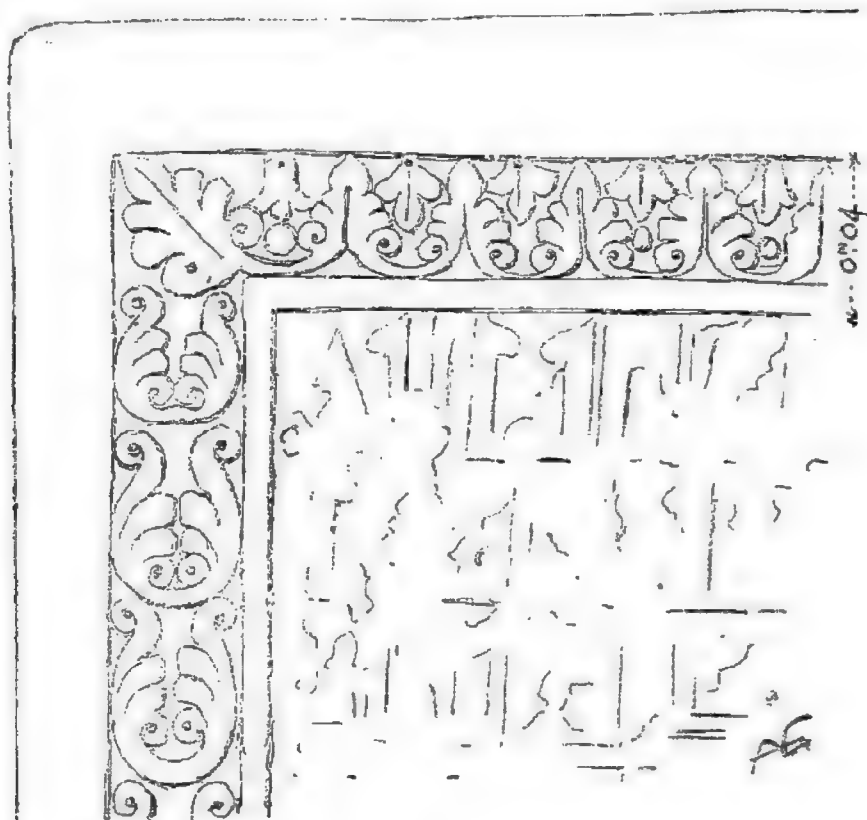 0ᵐ04